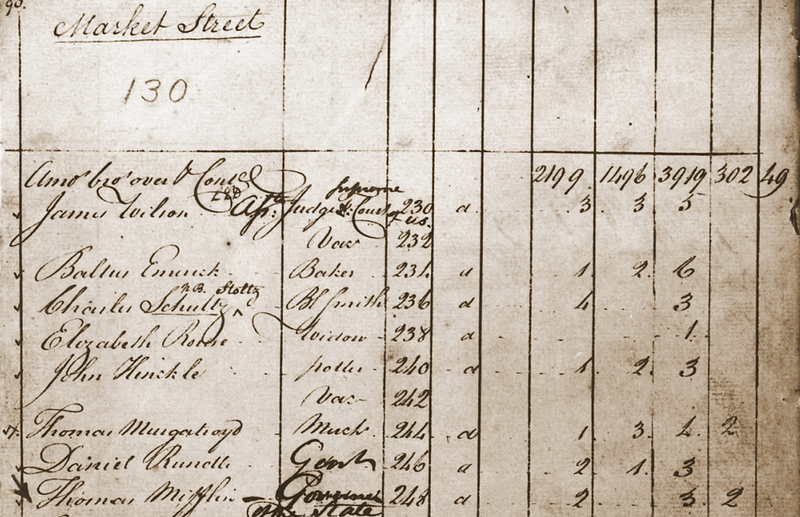 90.
Market Street
130
Amot bro't over & Conts'd 2199 1496 3919 302 49
228 supreme
James Wilson Ass: Judge Court 230 a 3 3 5
of US.
Vac 232
Baltus Emrick Baker 234 a 1 2 6
N.B. Stoltz
Charles Schultz Bl Smith 236 a 4 3
Elizabeth Widow 238 a 1
John Hinckle potter 240 a 1 2 3
Vac 242
Thomas Murgatroyd Merch 244 a 1 3 1 2
Daniel Rundle Gent 246 a 2 1 3
Thomas Mifflin Governor 248 a 2 3 2
of the State